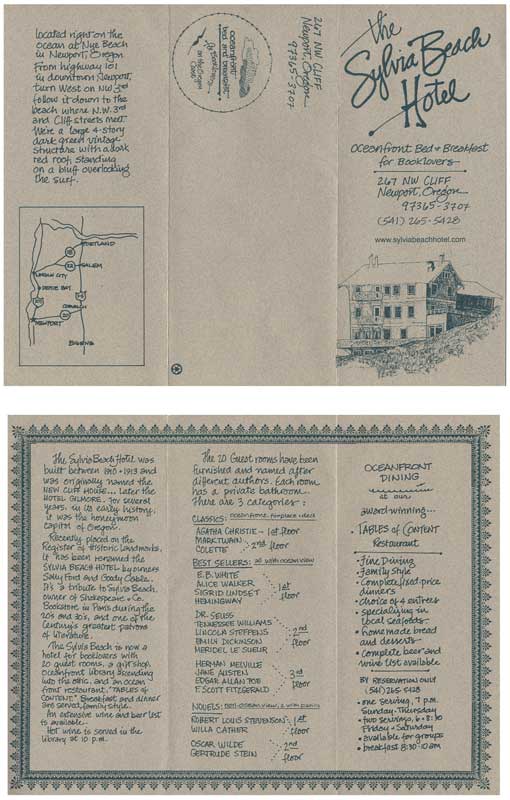 located right on the
ocean at Nye Beach
in Newport, Oregon
From highway 101
in downtown Newport,
turn West on NW 3rd
follow it down to the
beach where N.W. 3rd
and Cliff streets meet.
We're a large 4-story
dark green vintage
structure with a dark
red roof, standing
on a bluff overlooking
the surf.
PORTLAND
SALEM
LINCOLN CITY
DEPOE BAY
CORVALLIS
NEWPORT
EUGENE
oceanfront
bed and breakfast
for Booklovers
on the Oregon
Coast
267 NW CLIFF
Newport, Oregon
97365-3707
the
Sylvia Beach
Hotel
Oceanfront Bed & Breakfast
for Booklovers
267 NW CLIFF
Newport, Oregon
97365-3707
(541) 265-5428
www.sylviabeachhotel.com
The Sylvia Beach Hotel was
built between 1910 & 1913 and
was originally named the
NEW CLIFF HOUSE... Later the
HOTEL GILMORE. For several
years, in its early history,
it was the honeymoon
capitol of Oregon.
Recently placed on the
Register of Historic Landmarks,
it has been renamed the
SYLVIA BEACH HOTEL by owners
Sally Ford and Goody Cable.
It's a tribute to Sylvia Beach,
owner of Shakespeare & Co.
Bookstore in Paris during the
20's and 30's, and one of the
Century's greatest patrons
of literature.
The Sylvia Beach is now a
hotel for booklovers with
20 guest rooms, a gift shop,
oceanfront library ascending
into the attic, and an ocean
front restaurant, "TABLES OF
CONTENT." Breakfast and dinner
are served family style.
An extensive wine and beer list
is available.
Hot wine is served in the
library at 10 p.m.
The 20 Guest rooms have been
furnished and named after
different authors. Each room
has a private bathroom.
There are 3 categories:
CLASSICS: oceanfront, fireplace & deck
AGATHA CHRISTIE - 1st floor
MARK TWAIN
COLETTE 2nd floor
BEST SELLERS: all with ocean view
E.B. WHITE
ALICE WALKER
SIGRID UNDSET
HEMINGWAY
1st
floor
DR. SEUSS
TENNESSEE WILLIAMS
LINCOLN STEFFENS
EMILY DICKINSON
MERIDEL LE SUEUR
2nd
floor
HERMAN MELVILLE
JANE AUSTEN
EDGAR ALLAN POE
F. SCOTT FITZGERALD
3rd
floor
NOVELS: non-ocean view
ROBERT LOUIS STEVENSON
WILLA CATHER
1st
floor
OSCAR WILDE
GERTRUDE STEIN
2nd
floor
OCEANFRONT
DINING
at ours
award-winning...
TABLES of CONTENT
Restaurant
• Fine Dining
• Family Style
• Complete fixed price
dinners
• choice of 4 entrees
• specializing in
local seafoods
• homemade bread
and desserts
• complete beer and
wine list available
BY RESERVATION ONLY
(541) 265-5428
• one serving, 7 p.m.
Sunday-Thursday
• two servings, 6 & 8:30
Friday & Saturday
• available for groups
• breakfast 8:30-10 am